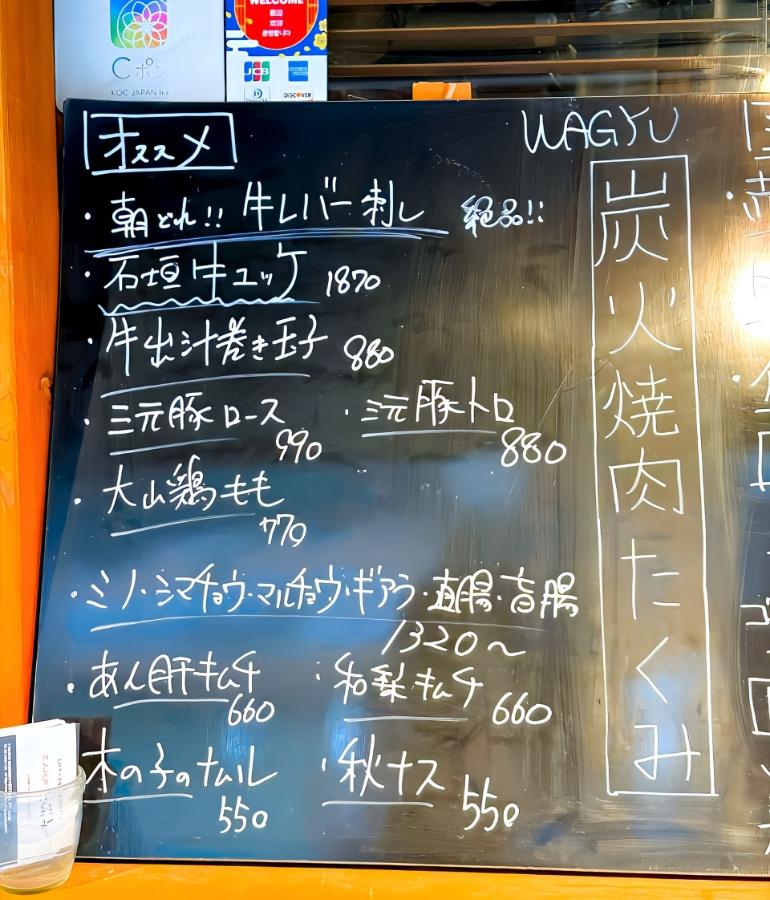 WELCOME
歓迎
환영합니다
Cポン
KOC JAPAN Inc
JCB
DISCOVER
オススメ
WAGYU
炭火焼肉たくみ
・朝どれ!! 牛レバー刺し 絶品!!
・石垣牛ユッケ 1870
・牛出汁巻き玉子 880
・三元豚ロース 990
・三元豚トロ 880
・大山鶏もも 770
・ミノ・シマチョウ・マルチョウ・ギアラ・直腸・盲腸
1320〜
・あん肝キムチ 660
・和梨キムチ 660
木の子のナムル 550
・秋ナス 550